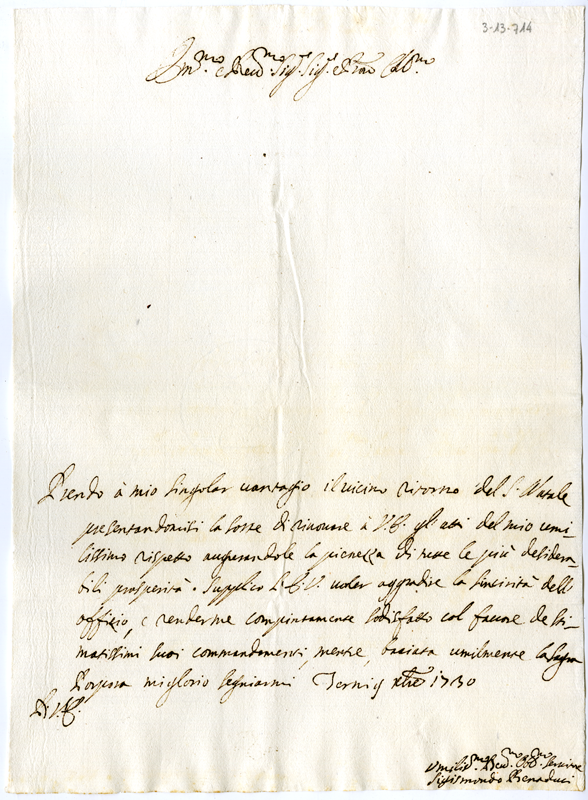 3-13-714
Ill.mo e Reu.mo Sig.r Sig.r e Pron Col.mo
Prendo à mio singolar uantagio il uicino ritorno del S. Natale
presentandomisi la sorte di rinouare à V.E. gl'atti del mio umi-
lissimo rispetto augurandole la pienezza di tutte le più desidera-
bili prosperità. Supplico L.E.V. uoler aggradire la sincirità dell'
offizio, e renderme compiutamente sodisfatto col fauore de sti-
matissimi suoi commandamenti, mentre, baciata umilmente la Sagra
Porpora mi glorio segniarmi Terni xbre 1730
A V.E.
Umiliss.mo Deu.mo Obb.mo Seruitore
Sigismondo Benaduci